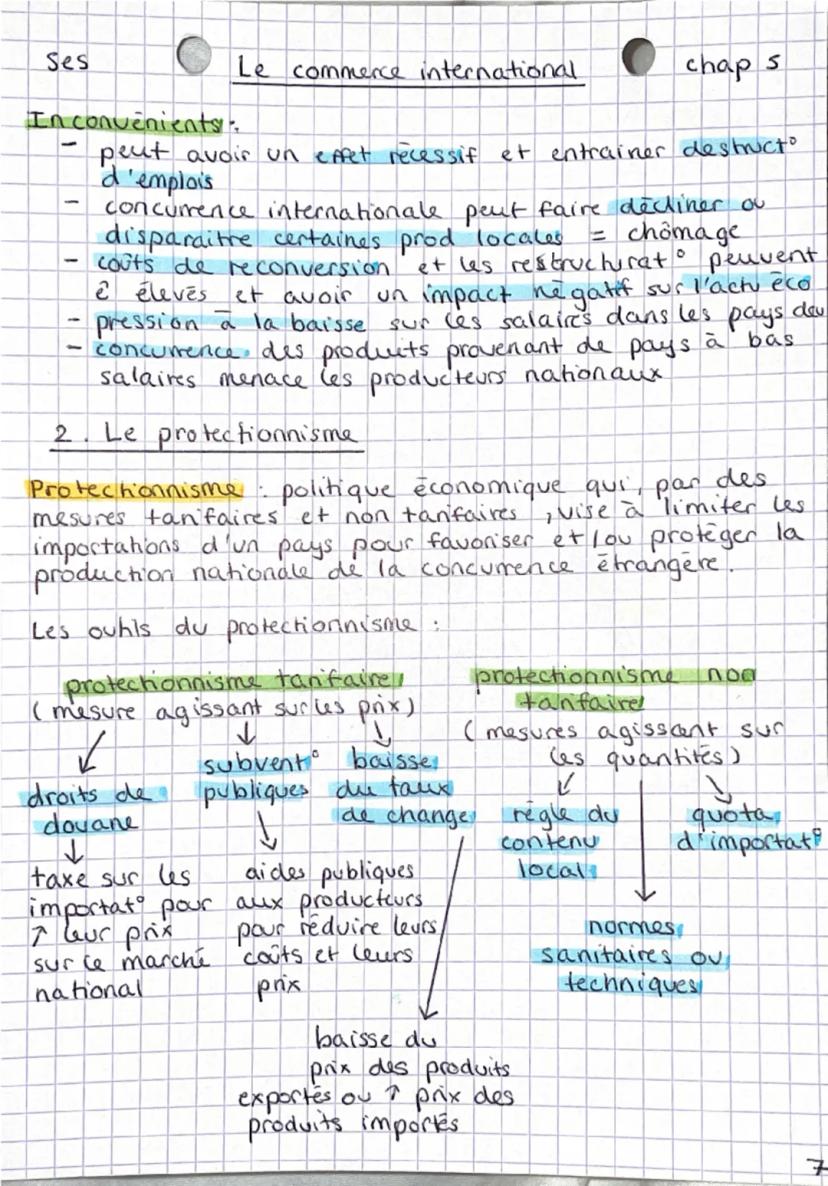 ses Le commerce international chap 5
Inconvénients :
- peut avoir un effet récessif et entrainer destruct°
d'emplois
- concurrence internationale peut faire décliner ou
disparaitre certaines prod locales = chômage
- coûts de reconversion et les restructurat° peuvent
ê élevés et avoir un impact négatif sur l'actv éco
- pression à la baisse sur les salaires dans les pays dev
- concurrence des produits provenant de pays à bas
salaires menace les producteurs nationaux
2. Le protectionnisme
Protectionnisme : politique économique qui, par des
mesures tarifaires et non tarifaires, vise à limiter les
importations d'un pays pour favoriser et/ou protéger la
production nationale de la concurrence étrangère.
Les outils du protectionnisme :
protectionnisme tarifaire
(mesure agissant sur les prix)
↓ ↓ ↓
droits de
douane
↓
taxe sur les
importat° pour
↑ leur prix
sur le marché
national
subvent°
publiques
↓
aides publiques
aux producteurs
pour réduire leurs
coûts et leurs
prix
baisse
du taux
de change
↓
baisse du
prix des produits
exportés ou ↑ prix des
produits importés
protectionnisme non
tarifaire
(mesures agissant sur
les quantités)
↓ ↓ ↓
règle du
contenu
local
normes
sanitaires ou
techniques
quota
d'importat°
7